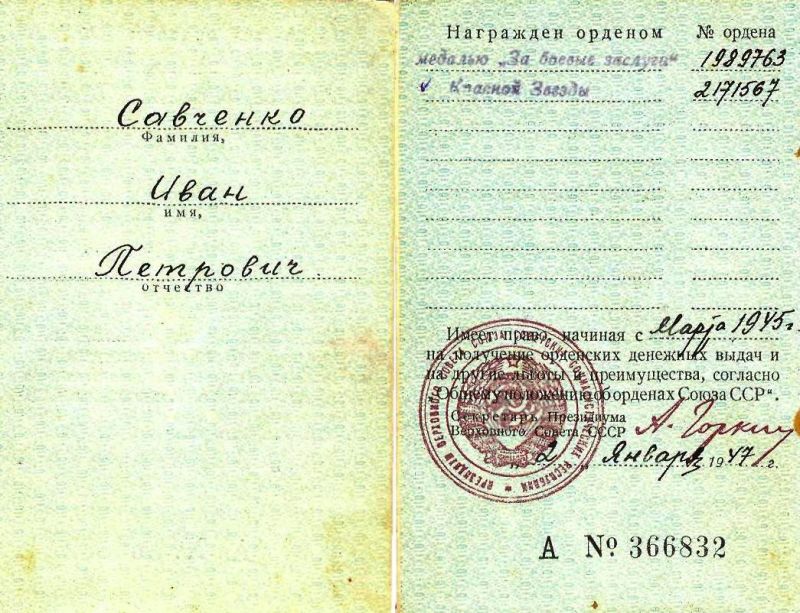 Савченко
Фамилия,
Иван
имя,
Петрович
отчество
Награжден орденом № ордена
медалью „За боевые заслуги“ 1989763
Красной Звезды 2171567
Имеет право, начиная с Марта 1945 г.
на получение орденских денежных выдач и
на другие льготы и преимущества, согласно
„Общему положению об орденах Союза ССР“.
Секретарь Президиума
Верховного Совета СССР А. Горкин
„2„ Января 1947 г.
А № 366832